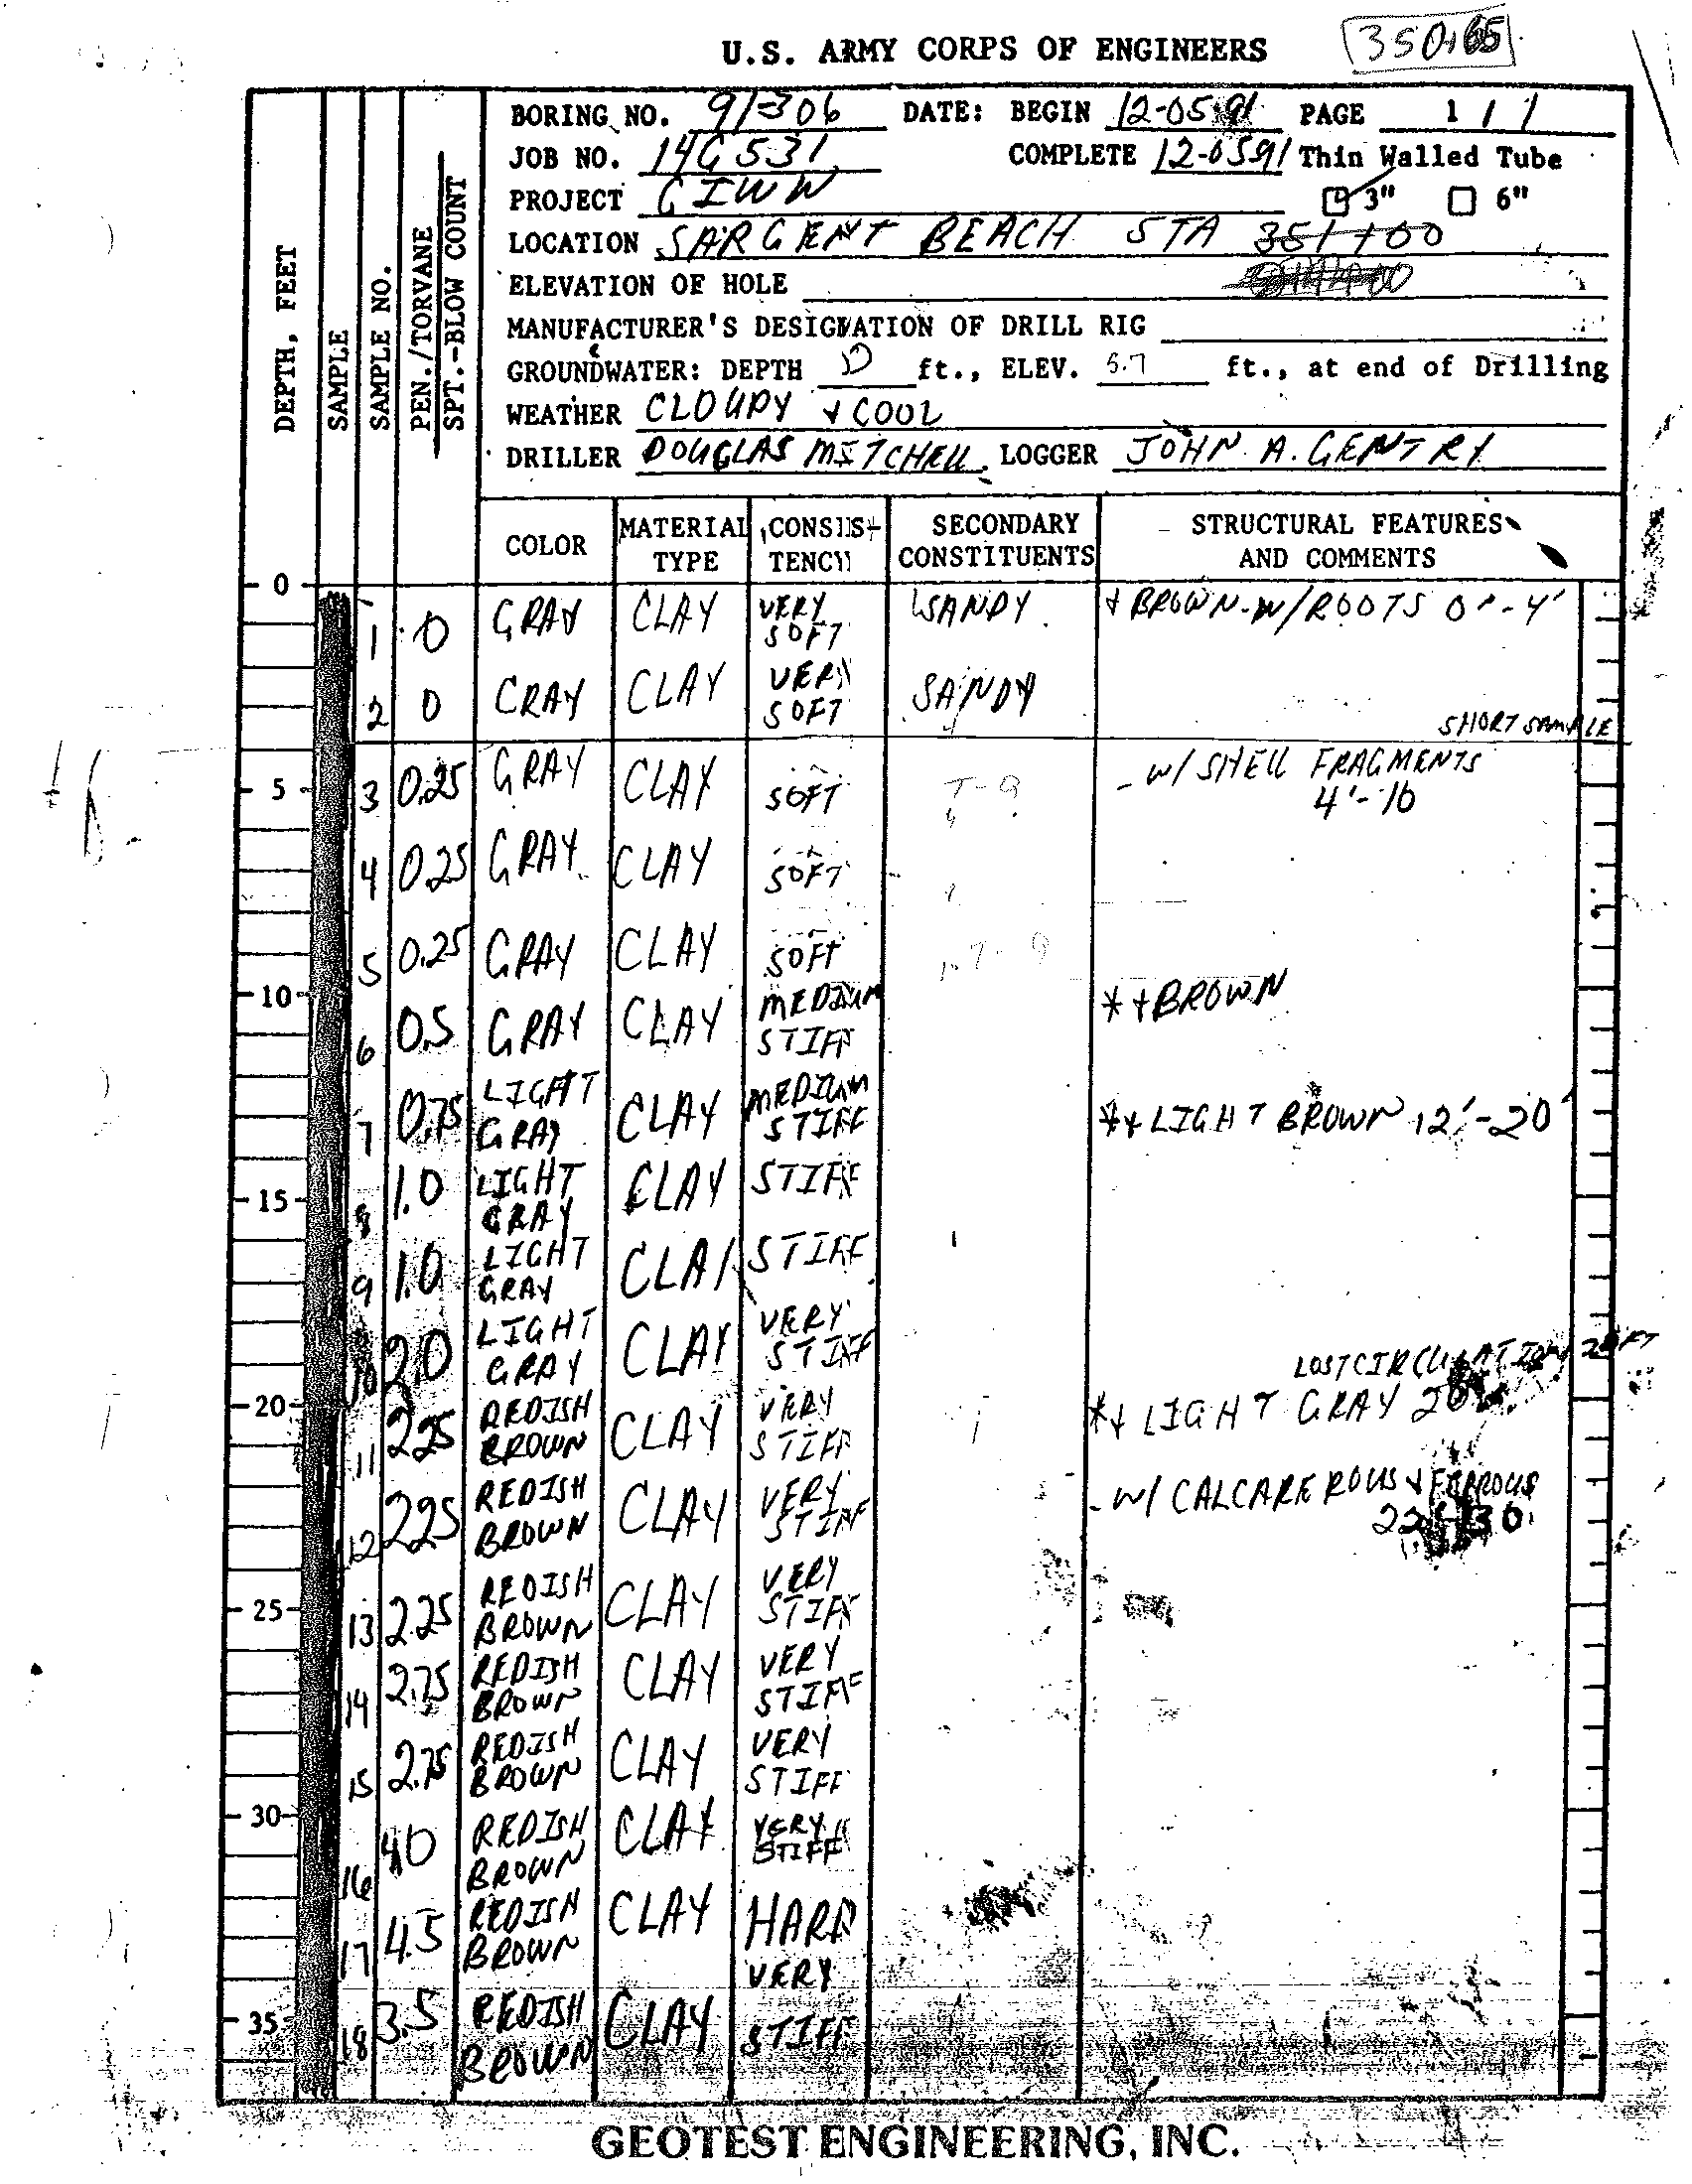 U.S. ARMY CORPS OF ENGINEERS
BORING NO. 91-306 DATE: BEGIN 12-05-91 PAGE 1 / 1
JOB NO. 14G531 COMPLETE 12-0591 Thin Walled Tube
PROJECT GIWW 3" 6"
LOCATION SARGENT BEACH STA 351+00
ELEVATION OF HOLE
MANUFACTURER'S DESIGNATION OF DRILL RIG
GROUNDWATER: DEPTH 0 ft., ELEV. 5.7 ft., at end of Drilling
WEATHER CLOUDY + COOL
DRILLER DOUGLAS MITCHELL LOGGER JOHN A. GENTRY
DEPTH, FEET
SAMPLE
SAMPLE NO.
PEN./TORVANE
SPT.-BLOW COUNT
COLOR MATERIAL TYPE CONSISTENCY SECONDARY CONSTITUENTS STRUCTURAL FEATURES AND COMMENTS
0
1 0 GRAY CLAY VERY SOFT SANDY + BROWN-W/ROOTS 0'-4'
2 0 GRAY CLAY VERY SOFT SANDY
SHORT SAMPLE
5 3 0.25 GRAY CLAY SOFT - W/ SHELL FRAGMENTS
4'-10
4 0.25 GRAY CLAY SOFT
5 0.25 GRAY CLAY SOFT
10
6 0.5 GRAY CLAY MEDIUM STIFF * + BROWN
7 0.75 LIGHT GRAY CLAY MEDIUM STIFF * + LIGHT BROWN 12'-20'
15 8 1.0 LIGHT GRAY CLAY STIFF
9 1.0 LIGHT GRAY CLAY STIFF
10 2.0 LIGHT GRAY CLAY VERY STIFF
LOST CIRCULATION 20FT
20
11 2.25 REDISH BROWN CLAY VERY STIFF * + LIGHT GRAY
12 2.25 REDISH BROWN CLAY VERY STIFF - W/ CALCAREROUS + FERROUS
25 13 2.25 REDISH BROWN CLAY VERY STIFF
14 2.75 REDISH BROWN CLAY VERY STIFF
15 2.75 REDISH BROWN CLAY VERY STIFF
30
16 4.0 REDISH BROWN CLAY VERY STIFF
17 4.5 REDISH BROWN CLAY HARD
35 18 3.5 REDISH BROWN CLAY VERY STIFF
GEOTEST ENGINEERING, INC.